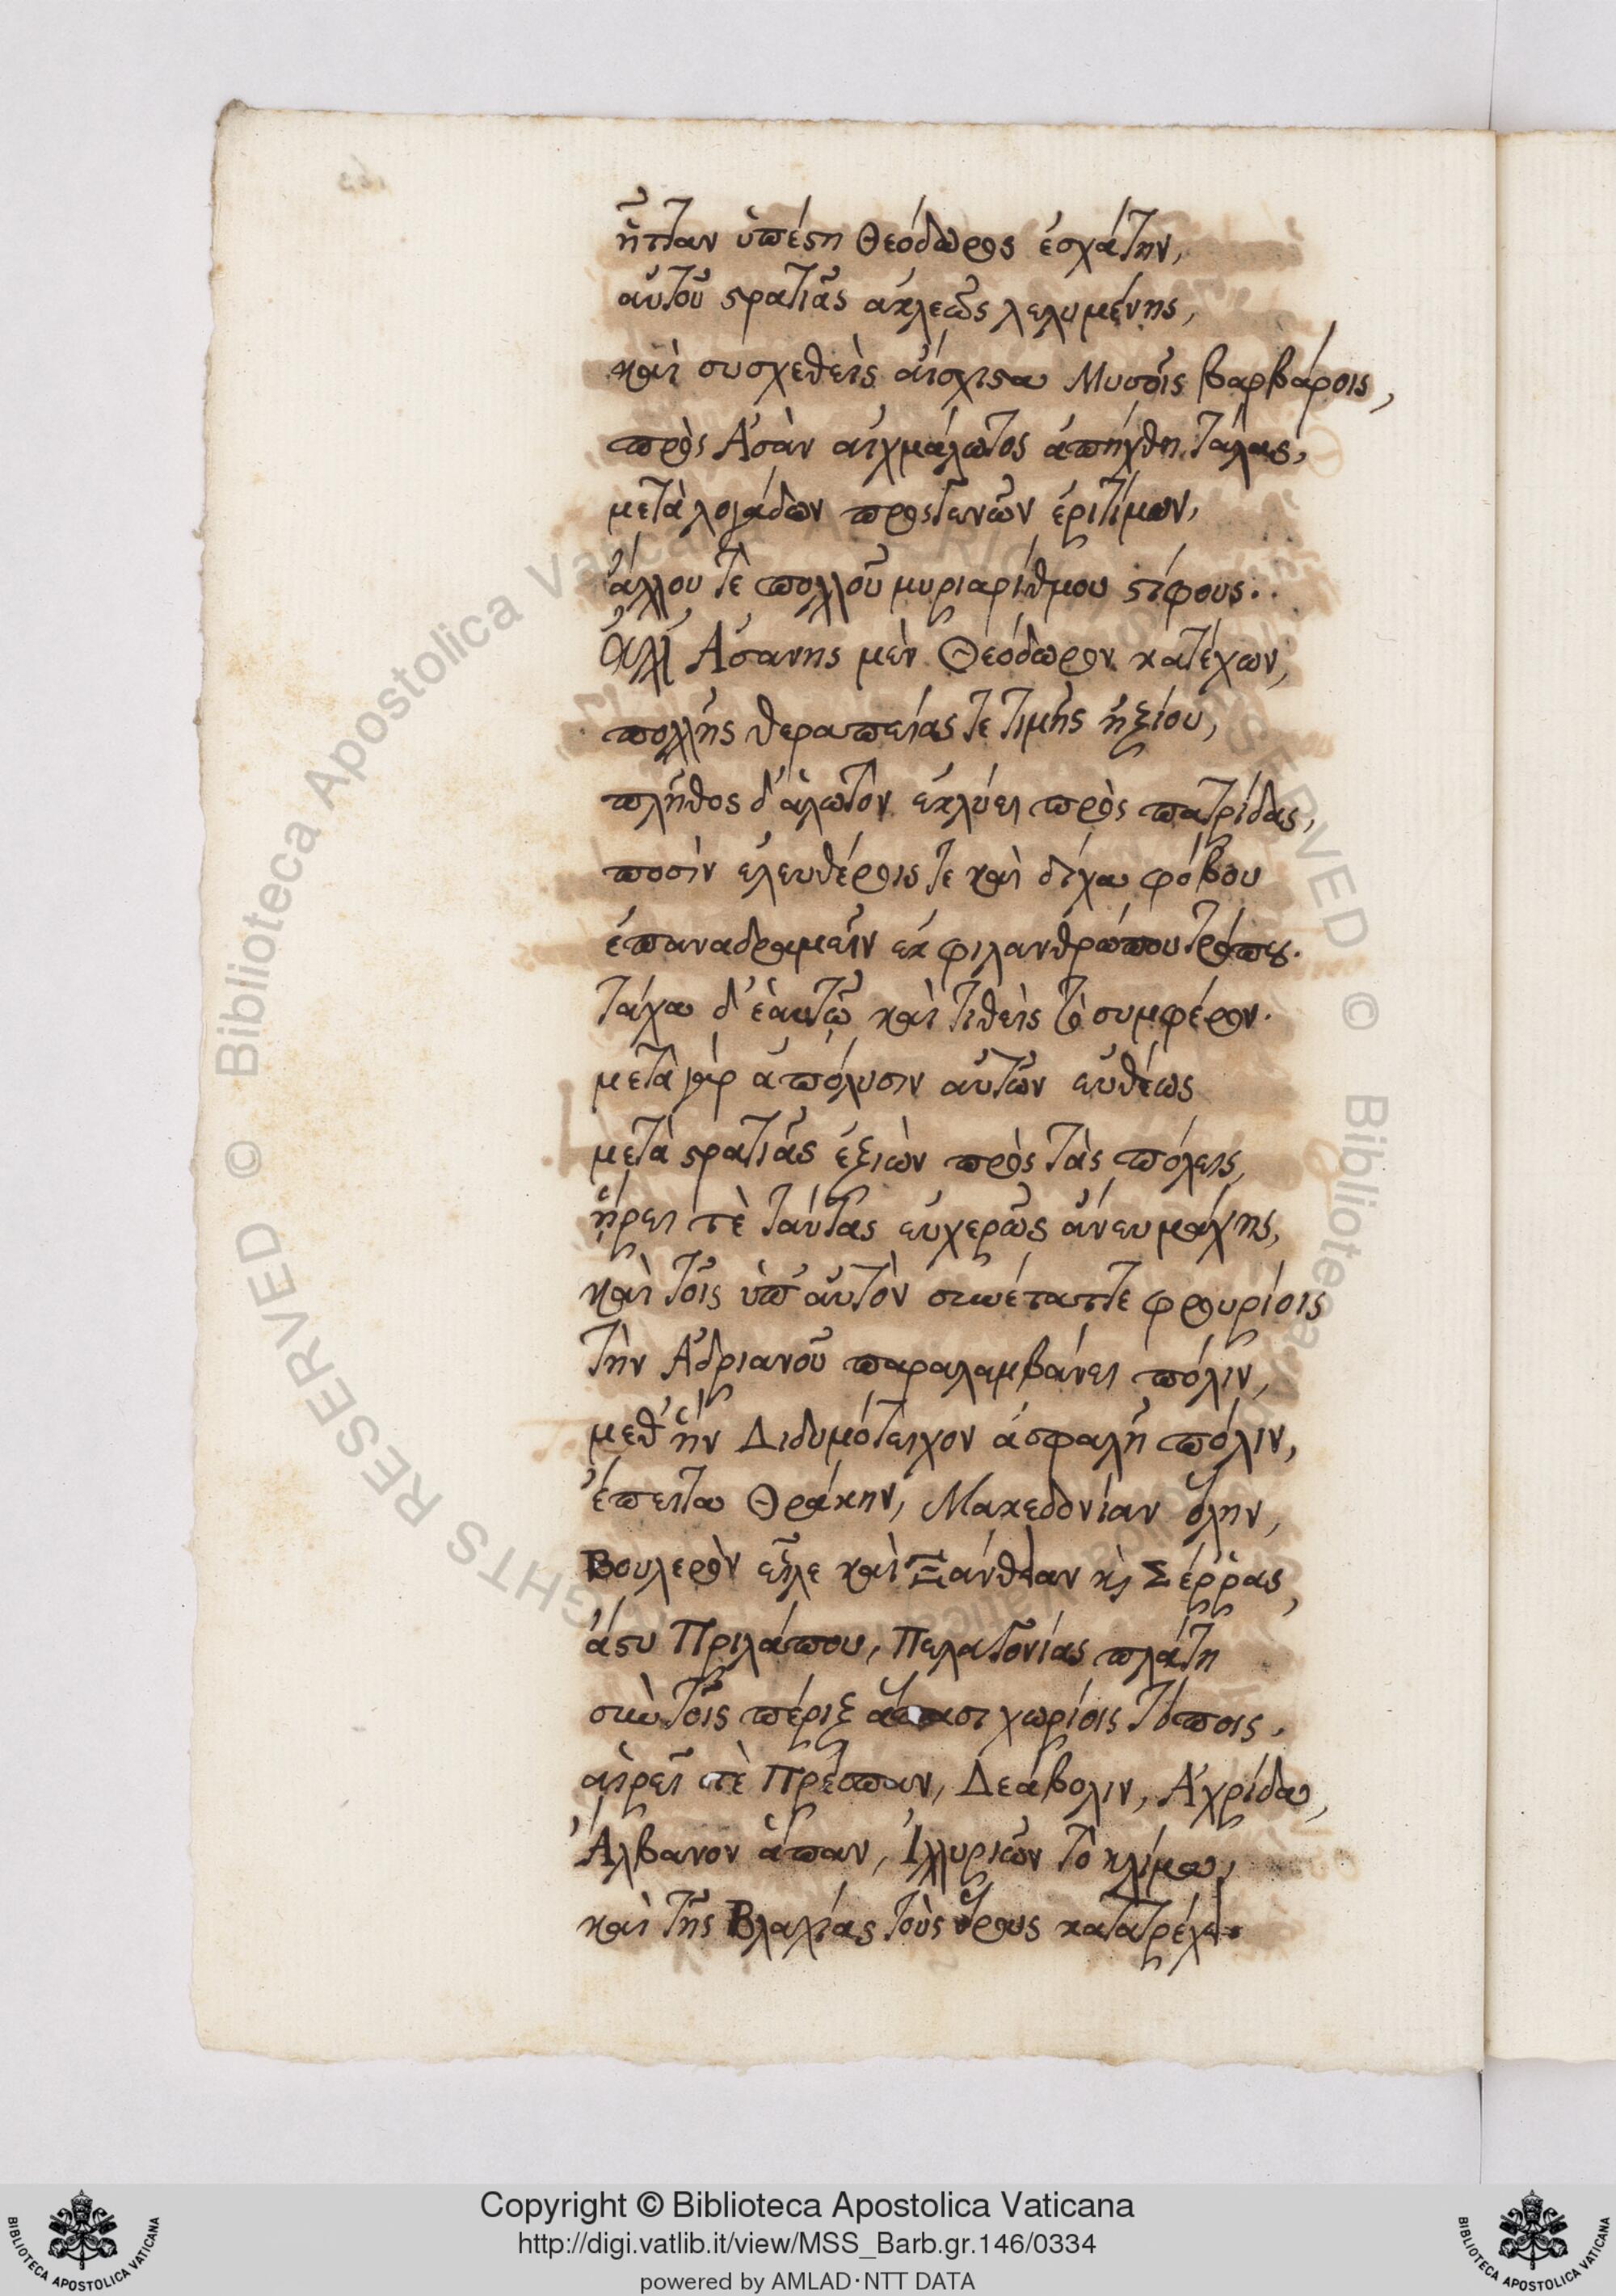 ἧτταν ὑπέστη Θεόδωρος ἐσχάτην,
αὐτοῦ στρατιᾶς ἀκλεῶς λελυμένης,
καὶ συσχεθεὶς αἴσχιστα Μυσοῖς βαρβάροις,
πρὸς Ἀσὰν αἰχμάλωτος ἀπήχθη τάλας,
μετὰ λογάδων προστενῶν ἐριτίμων,
ἄλλου τε πολλοῦ μυριαρίθμου στίφους.
Ἀλλ' Ἀσανης μὲν Θεόδωρον κατέχων,
πολλῆς θεραπείας τε τιμῆς ἠξίου,
πλῆθος δ' ἁλωτὸν ἐκλύει πρὸς πατρίδας,
ποσὶν ἐλευθέροις τε καὶ δίχα φόβου
ἐπαναδραμεῖν ἐκ φιλανθρώπου
τάχα δ' ἑαυτῷ καὶ τιθεὶς τὸ συμφέρον.
μετὰ γὰρ ἀπόλυσιν αὐτῶν εὐθέως
μετὰ στρατιᾶς ἐξιὼν πρὸς τὰς πόλεις,
ᾕρει τὲ ταύτας εὐχερῶς ἄνευ μάχης,
καὶ τοῖς ὑπ' αὐτὸν συνέταττε φρουρίοις
τὴν Ἀδριανοῦ παραλαμβάνει πόλιν,
μεθ' ἣν Διδυμότειχον ἀσφαλῆ πόλιν,
ἔπειτα Θράκην, Μακεδονίαν ὅλην,
Βουλερὸν εἷλε καὶ Ξάνθειαν κὶ Σέῤῥας,
ἄστυ Πριλάπου, Πελατονίας πλάτη
σὺν τοῖς πέριξ ἅπασι χωρίοις τόποις,
αἱρεῖ τὲ Πρέσπαν, Δεάβολιν, Ἀχρίδα,
Ἄλβανον ἅπαν, Ἰλλυριῶν τὸ κλίμα,
καὶ τῆς Βλαχίας τοὺς ὅρους κατατρέχει.
Copyright © Biblioteca Apostolica Vaticana
http://digi.vatlib.it/view/MSS_Barb.gr.146/0334
powered by AMLAD·NTT DATA